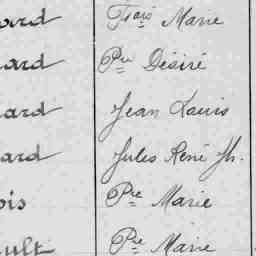 ard Fçois Marie
ard Pre Désiré
ard Jean Louis
ard Jules René Jh.
ois Pre Marie
ult Pre Marie